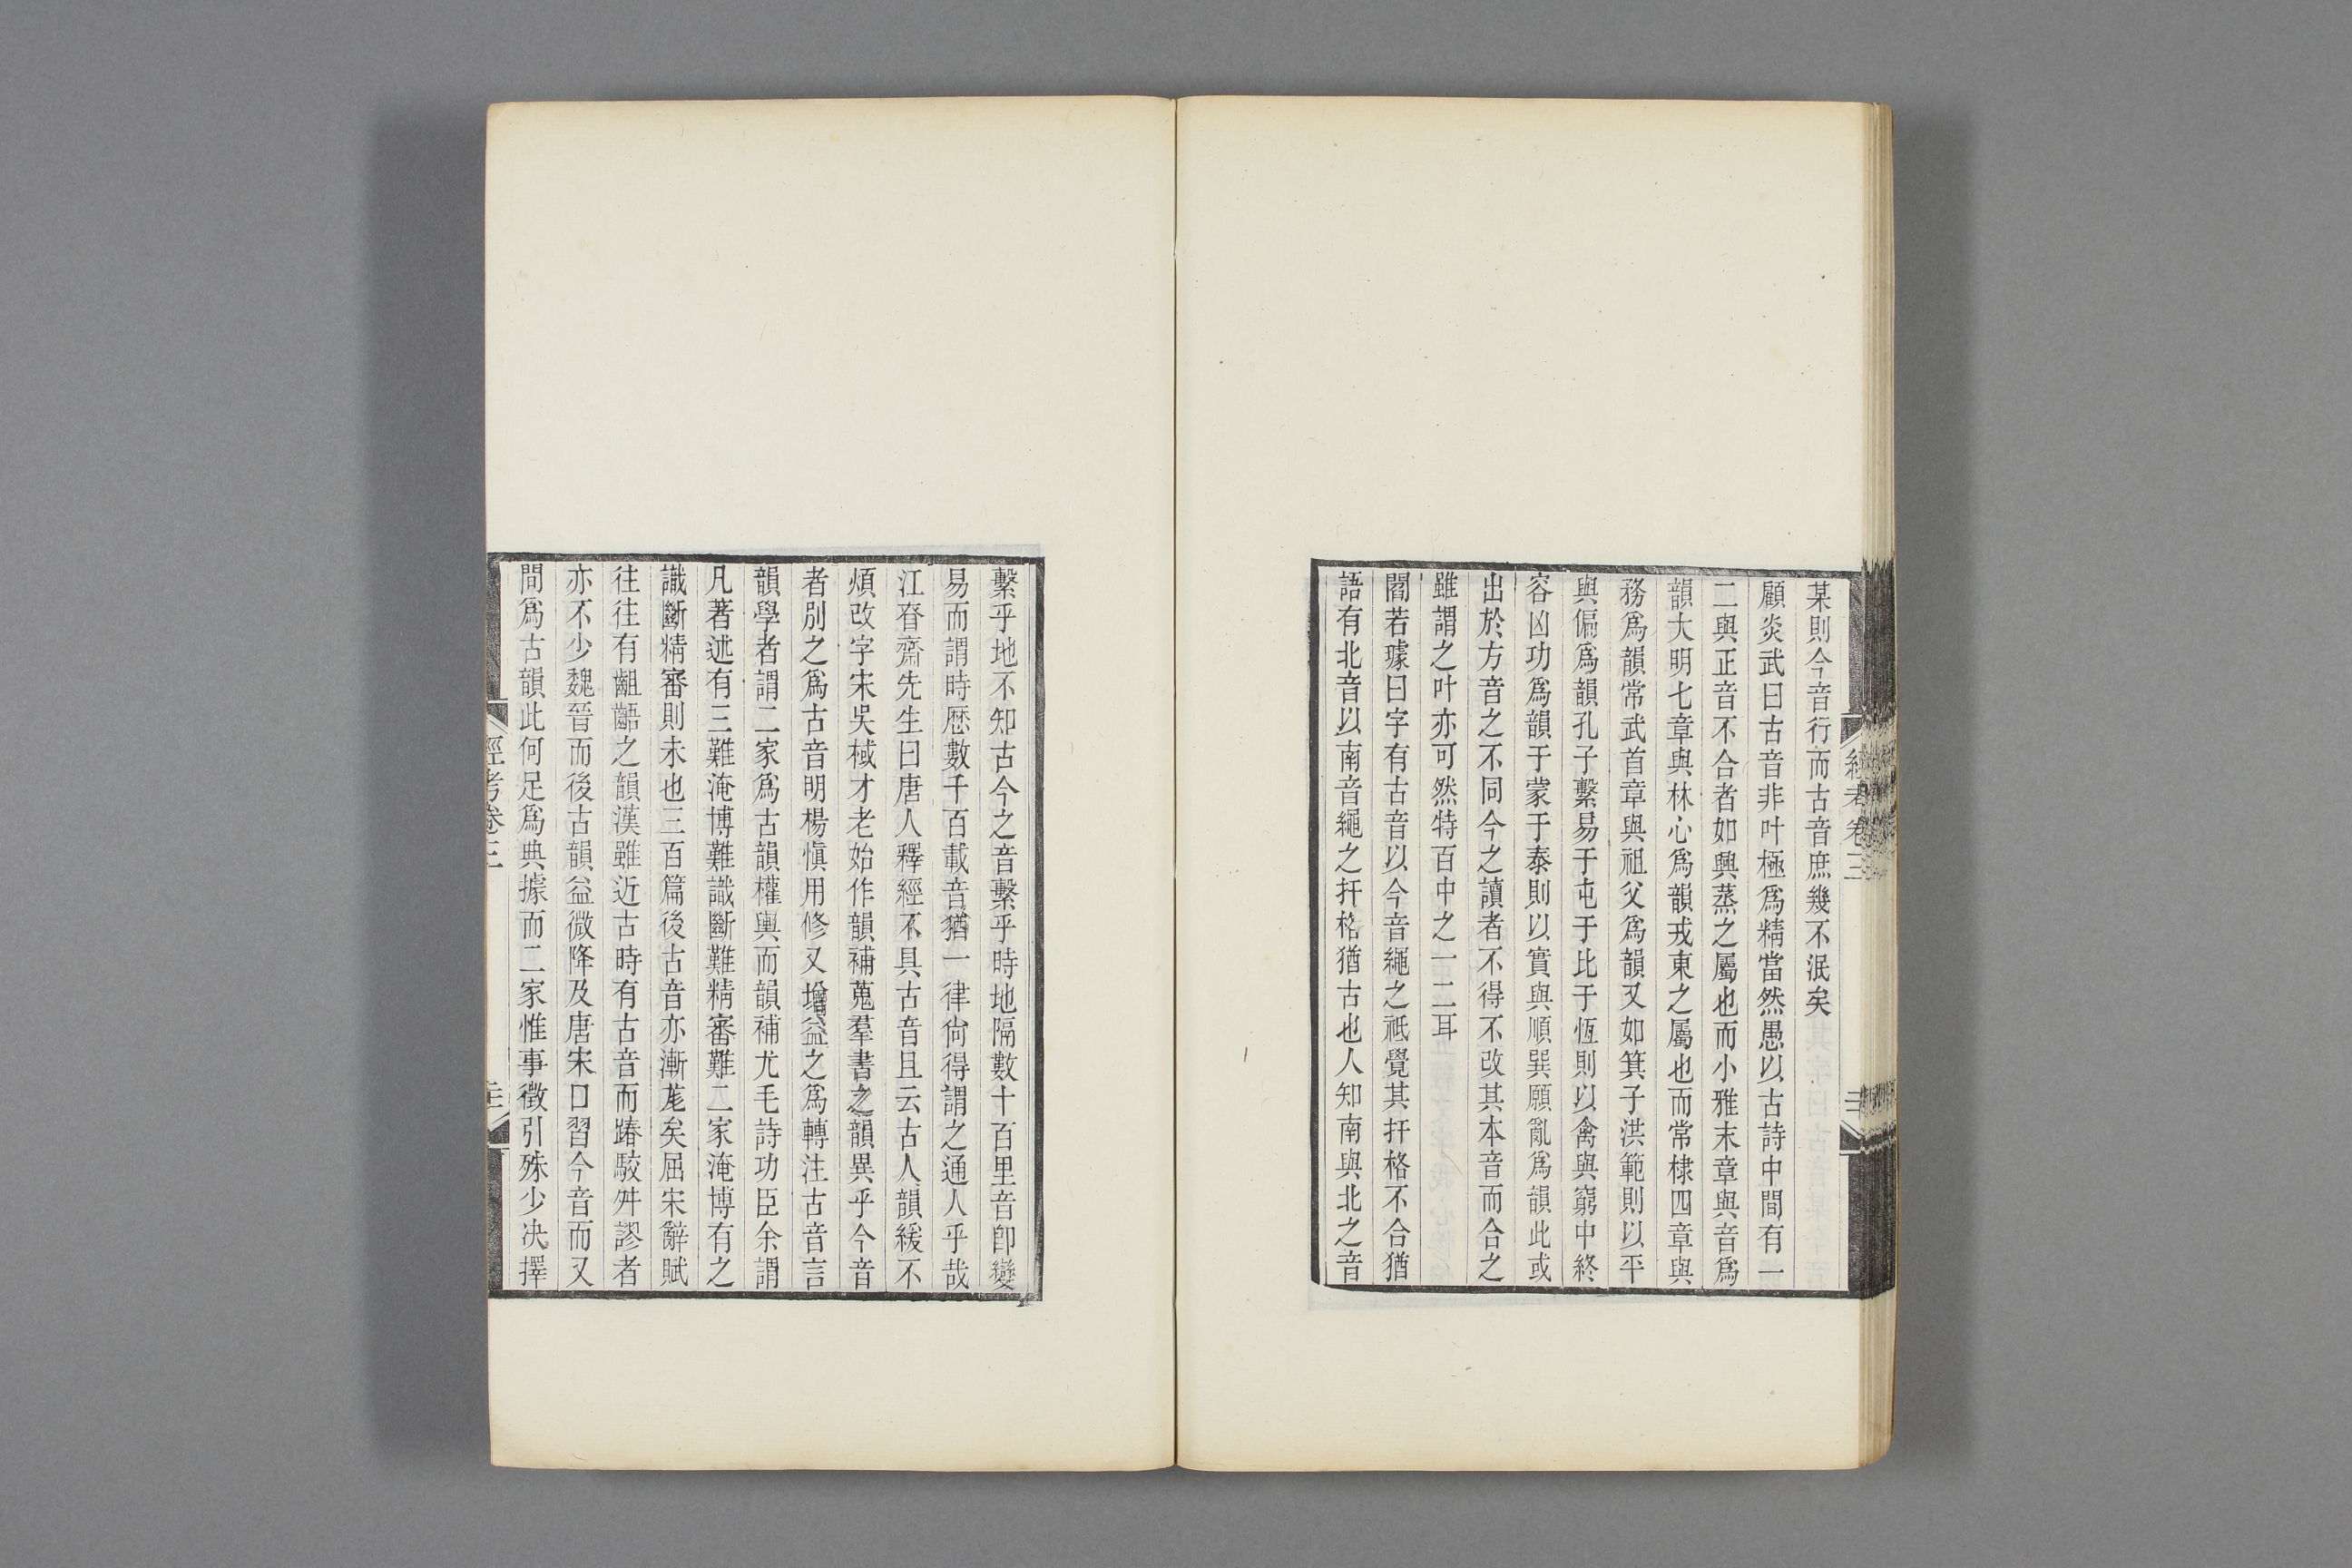 某則今音行而古音庶幾不泯矣
顧炎武曰古音非叶極爲精當然愚以古詩中間有一
二與正音不合者如興蒸之屬也而小雅末章與音爲
韻大明七章與林心爲韻戎東之屬也而常棣四章與
務爲韻常武首章與祖父爲韻又如箕子洪範則以平
與偏爲韻孔子繫易于屯于比于恆則以禽與窮中終
容凶功爲韻于蒙于泰則以實與順巽願亂爲韻此或
出於方音之不同今之讀者不得不改其本音而合之
雖謂之叶亦可然特百中之一二耳
閻若璩曰字有古音以今音繩之祗覺其扞格不合猶
語有北音以南音繩之扞格猶古也人知南與北之音
經考卷三
繫乎地不知古今之音繫乎時地隔數十百里音卽變
易而謂時歷數千百載音猶一律尙得謂之通人乎哉
江眘齋先生曰唐人釋經不具古音且云古人韻緩不
煩改字宋吳棫才老始作韻補蒐羣書之韻異乎今音
者別之爲古音明楊愼用修又增益之爲轉注古音言
韻學者謂二家爲古韻權輿而韻補尤毛詩功臣余謂
凡著述有三難淹博難識斷難精審難二家淹博有之
識斷精審則未也三百篇後古音亦漸尨矣屈宋辭賦
往往有齟齬之韻漢雖近古時有古音而踳駮舛謬者
亦不少魏晉而後古韻益微降及唐宋口習今音而又
間爲古韻此何足爲典據而二家惟事徵引殊少决擇
經考卷三